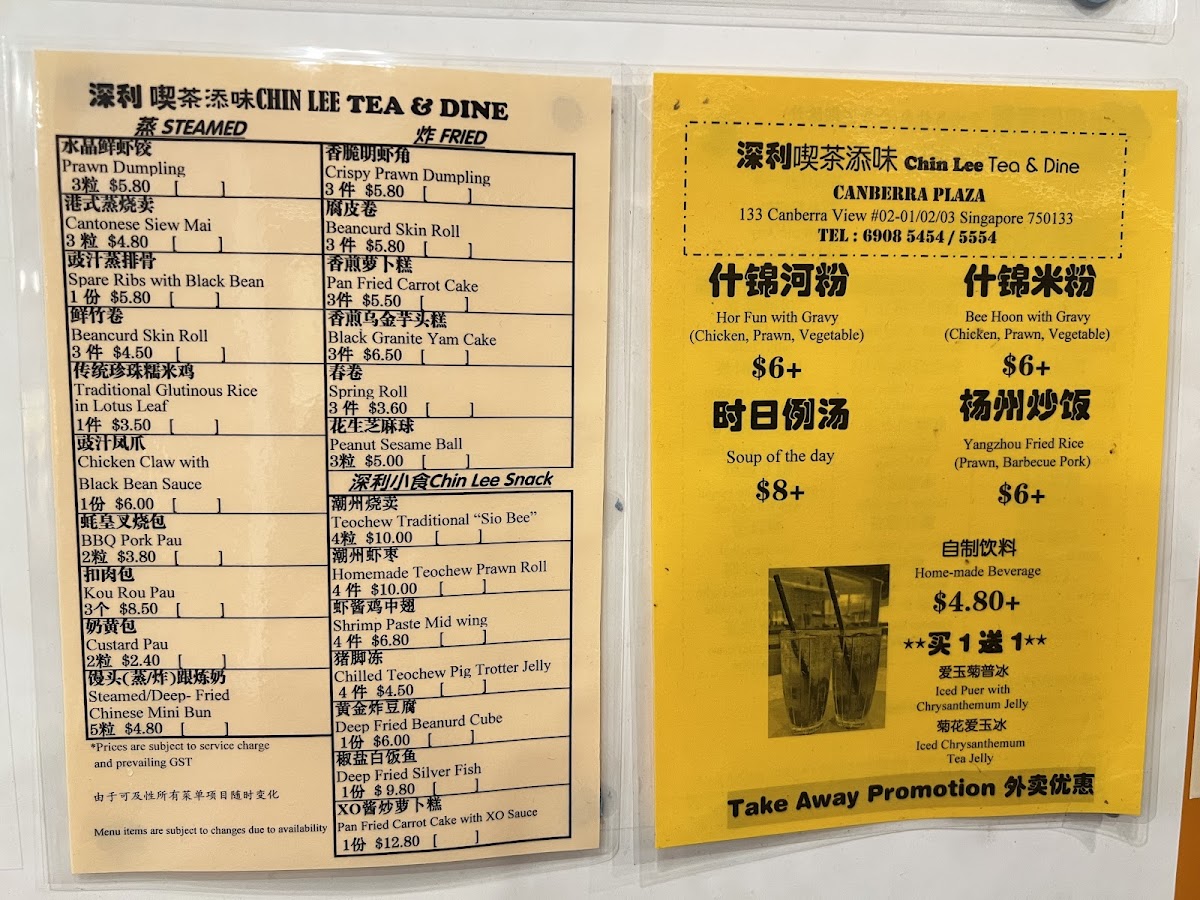 深利 喫茶添味CHIN LEE TEA & DINE
蒸 STEAMED
水晶鲜虾饺
Prawn Dumpling
3粒 $5.80 [ ]
港式蒸烧卖
Cantonese Siew Mai
3 粒 $4.80 [ ]
豉汁蒸排骨
Spare Ribs with Black Bean
1 份 $5.80 [ ]
鲜竹卷
Beancurd Skin Roll
3 件 $4.50 [ ]
传统珍珠糯米鸡
Traditional Glutinous Rice
in Lotus Leaf
1件 $3.50 [ ]
豉汁凤爪
Chicken Claw with
Black Bean Sauce
1份 $6.00 [ ]
蚝皇叉烧包
BBQ Pork Pau
2粒 $3.80 [ ]
扣肉包
Kou Rou Pau
3个 $8.50 [ ]
奶黄包
Custard Pau
2粒 $2.40 [ ]
馒头(蒸/炸)跟炼奶
Steamed/Deep- Fried
Chinese Mini Bun
5粒 $4.80 [ ]
*Prices are subject to service charge
and prevailing GST
由于可及性所有菜单项目随时变化
Menu items are subject to changes due to availability
炸 FRIED
香脆明虾角
Crispy Prawn Dumpling
3 件 $5.80 [ ]
腐皮卷
Beancurd Skin Roll
3 件 $5.80 [ ]
香煎萝卜糕
Pan Fried Carrot Cake
3件 $5.50 [ ]
香煎乌金芋头糕
Black Granite Yam Cake
3件 $6.50 [ ]
春卷
Spring Roll
3 件 $3.60 [ ]
花生芝麻球
Peanut Sesame Ball
3粒 $5.00 [ ]
深利小食Chin Lee Snack
潮州烧卖
Teochew Traditional “Sio Bee”
4粒 $10.00 [ ]
潮州虾枣
Homemade Teochew Prawn Roll
4 件 $10.00 [ ]
虾酱鸡中翅
Shrimp Paste Mid wing
4 件 $6.80 [ ]
猪脚冻
Chilled Teochew Pig Trotter Jelly
4 件 $4.50 [ ]
黄金炸豆腐
Deep Fried Beanurd Cube
1份 $6.00 [ ]
椒盐白饭鱼
Deep Fried Silver Fish
1份 $ 9.80 [ ]
XO酱炒萝卜糕
Pan Fried Carrot Cake with XO Sauce
1份 $12.80 [ ]
深利喫茶添味 Chin Lee Tea & Dine
CANBERRA PLAZA
133 Canberra View #02-01/02/03 Singapore 750133
TEL : 6908 5454 / 5554
什锦河粉
Hor Fun with Gravy
(Chicken, Prawn, Vegetable)
$6+
什锦米粉
Bee Hoon with Gravy
(Chicken, Prawn, Vegetable)
$6+
时日例汤
Soup of the day
$8+
杨州炒饭
Yangzhou Fried Rice
(Prawn, Barbecue Pork)
$6+
自制饮料
Home-made Beverage
$4.80+
**买 1 送 1**
爱玉菊普冰
Iced Puer with
Chrysanthemum Jelly
菊花爱玉冰
Iced Chrysanthemum
Tea Jelly
Take Away Promotion 外卖优惠